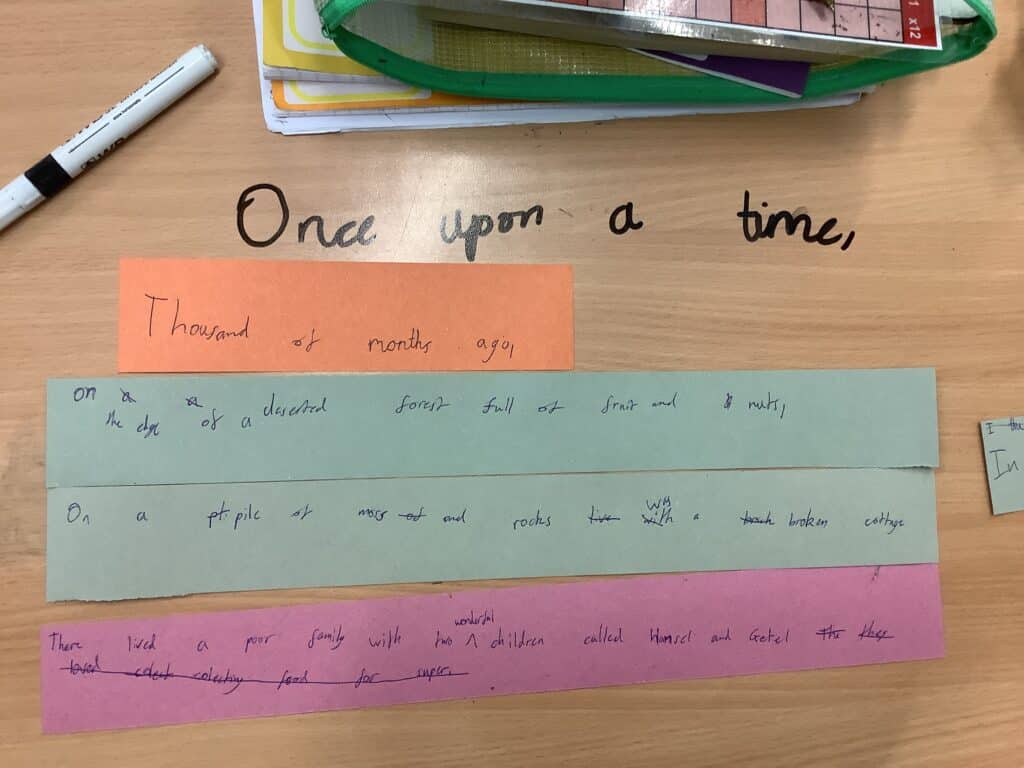 x12
Once upon a time,
Thousand of months ago,
on the edge of a deserted forest full of fruit and nuts,
On a pt. pile of moss and rocks with a broken cottage
There lived a poor family with two wonderful children called Hansel and Getel
loved colect colecting food for super.
I
In